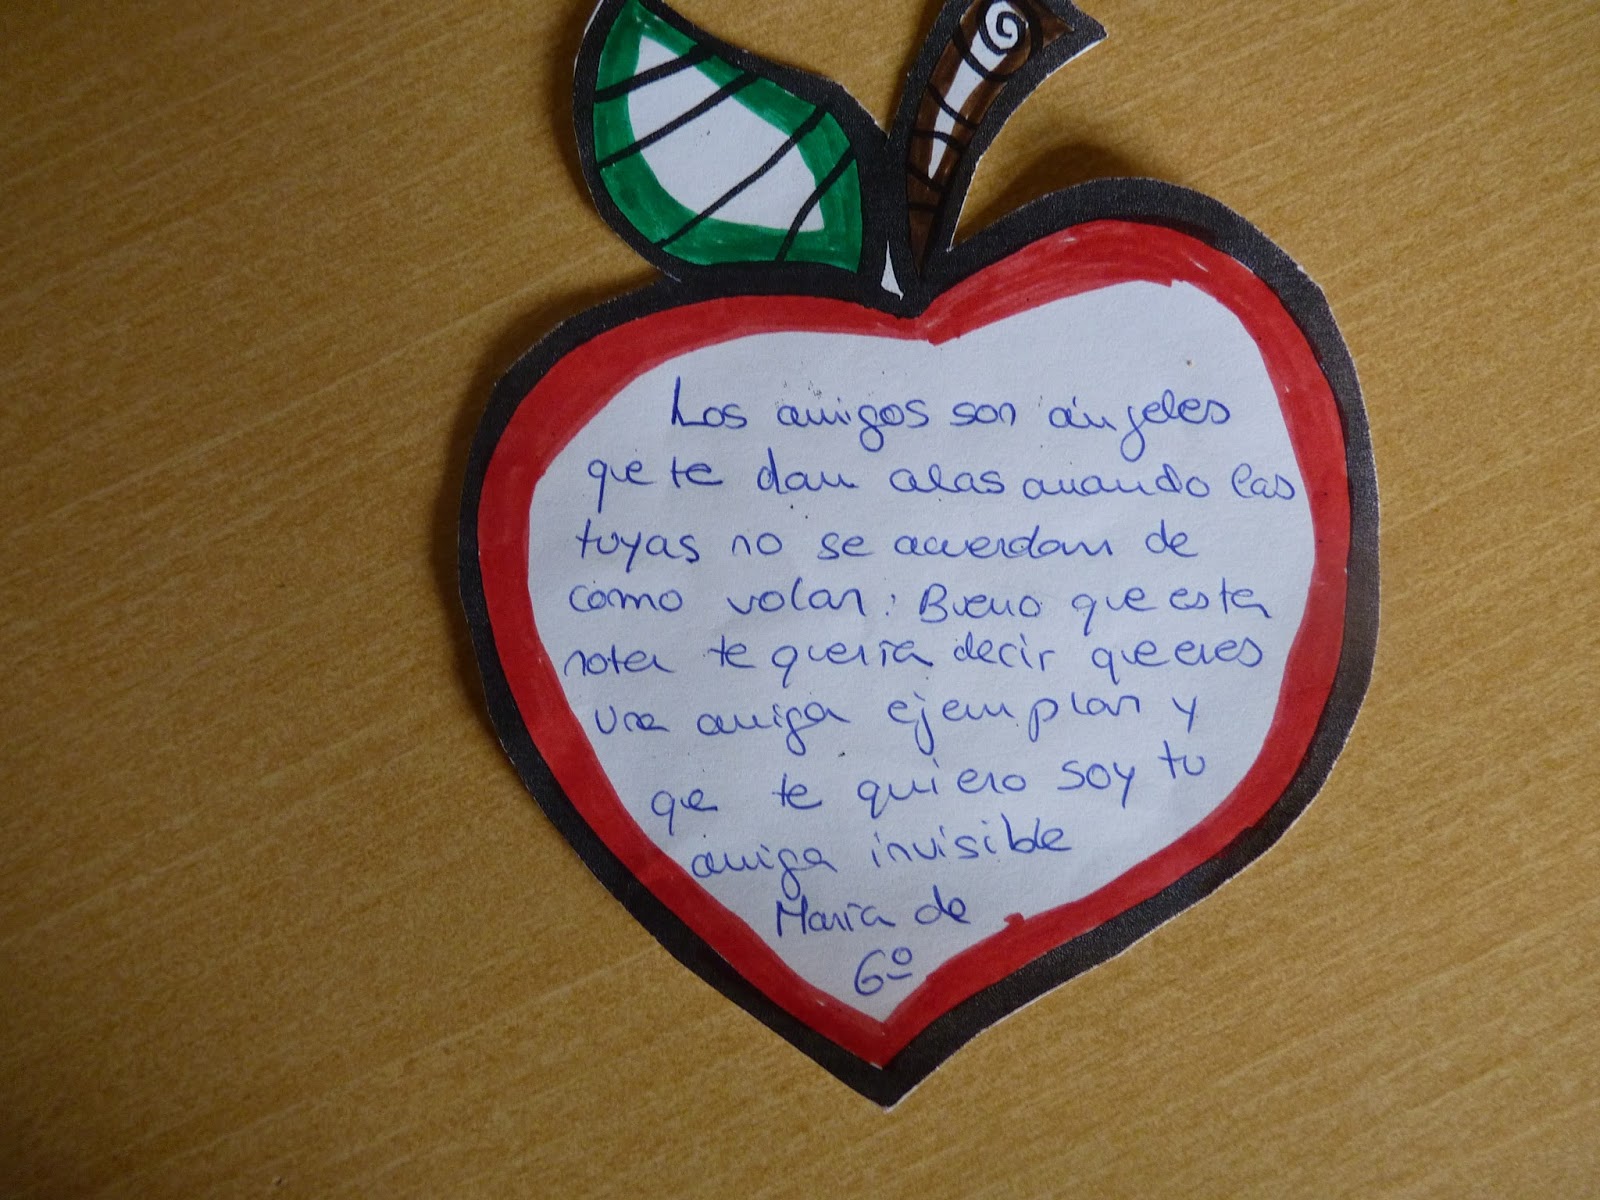 Los amigos son ángeles
que te dan alas cuando las
tuyas no se acuerdan de
como volar. Bueno que esta
nota te quería decir que eres
una amiga ejemplar y
que te quiero soy tu
amiga invisible
María de
6º